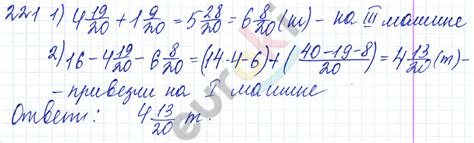 221 1) 4 19/20 + 1 9/20 = 5 28/20 = 6 8/20 (т) - на III машине
2) 16 - 4 19/20 - 6 8/20 = (14-4-6) + (40-19-8)/20 = 4 13/20 (т) -
- привезли на I машине
Ответ: 4 13/20 т.